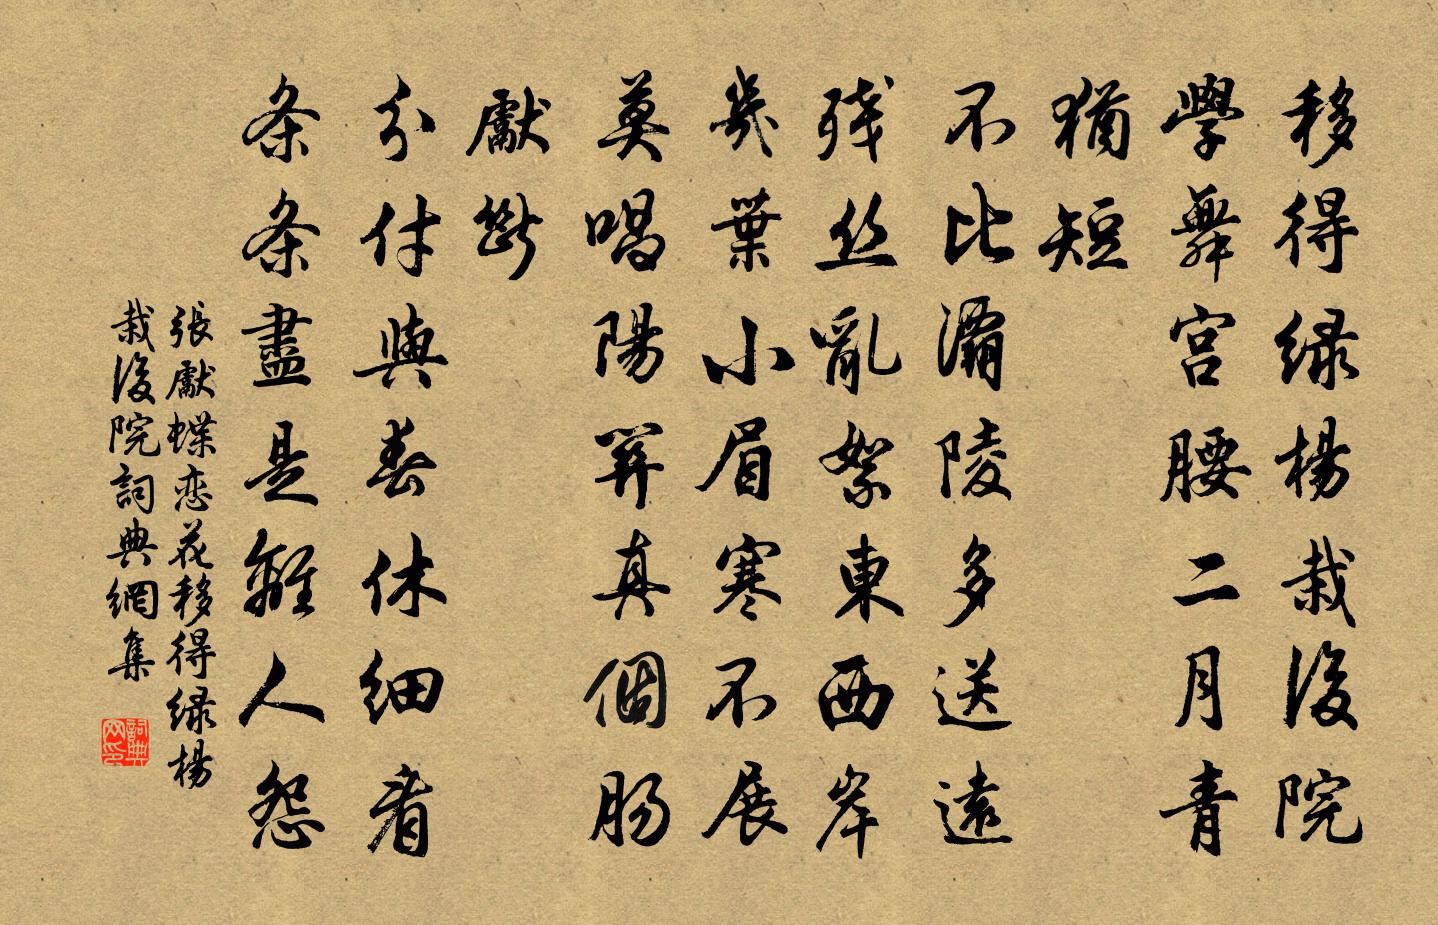 移得绿楊栽後院
學舞宫腰二月青
猶短
不比灞陵多送遠
残丝亂絮東西岸
幾葉小眉寒不展
莫唱陽關真個肠
獻斷
分付與春休細看
条条盡是離人怨
張獻蝶恋花移得绿楊
栽後院詞典網集
詞典
网印